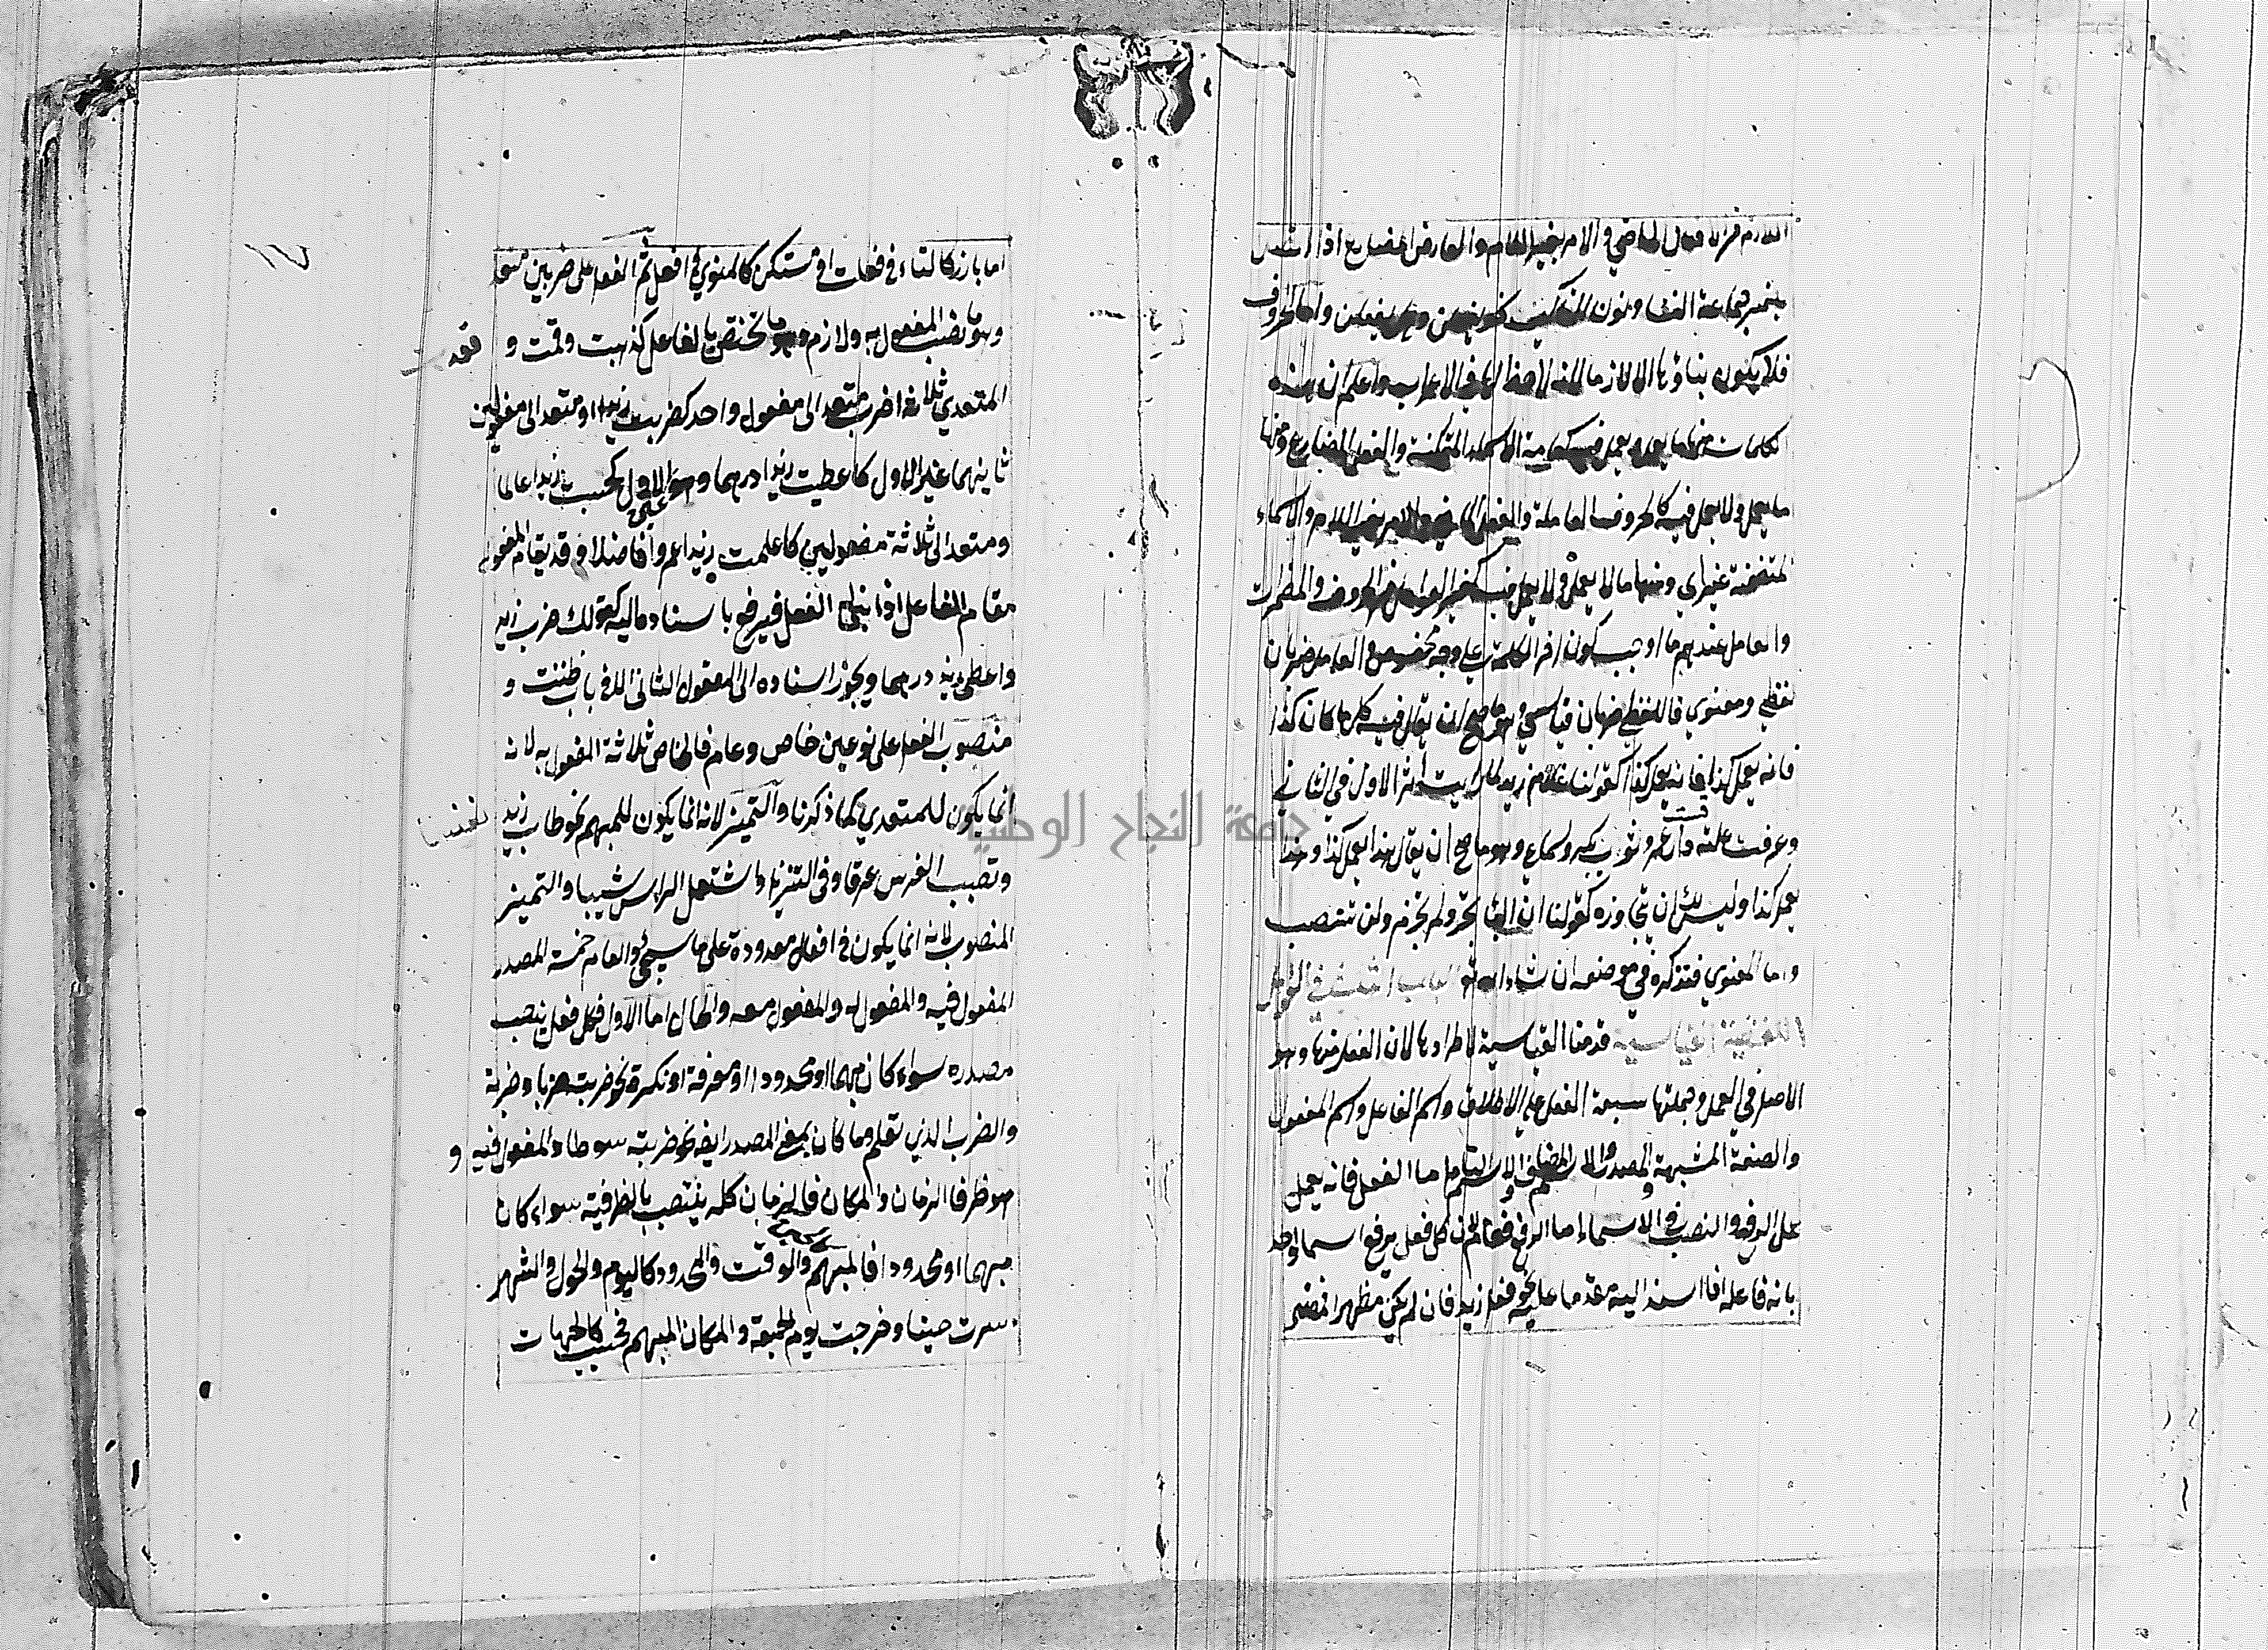 اللازم من الافعال الماضي والامر بغير اللام والعارض المضارع اذا اتصل
بضمير جماعة النساء ونون التاكيد نحو يفعلن وهل يفعلن واما الحروف
فلا يكون بناؤها الا لازما لانه لاحظ لها في الاعراب واعلم ان هذه
الكلمات منها ما يعمل ويعمل فيه كعامة الاسماء المتمكنة والفعل المضارع ومنها
ما يعمل ولا يعمل فيه كالحروف العاملة والفعل الماضي والامر بغير اللام والاسماء
المتضمنة غير اي ومنها ما لا يعمل ولا يعمل فيه كغير العوامل من الحروف والمضمرات
والعامل عندهم ما اوجب كون اخر الكلمة على وجه مخصوص والعامل ضربان
لفظي ومعنوي فاللفظي ضربان قياسي وهو ما صح ان يقال فيه كل ما كان كذا
فانه يعمل كذا كقولنا غلام زيد لما رايت اثر الاول في الثاني
وعرفت علته قست دار عمرو وثوب بكر وسماعي وهو ما صح ان يقال هذا يعمل كذا وهذا
يعمل كذا وليس لك ان تتجاوزه كقولنا ان الباء تجر ولم تجزم ولن تنصب
واما المعنوي فنذكره في موضعه ان شاء الله تع الباب الثاني في العوامل
اللفظية القياسية قدمنا القياسية لاطرادها لان الفعل منها وهو
الاصل في العمل وجملتها سبعة الفعل على الاطلاق واسم الفاعل واسم المفعول
والصفة المشبهة والمصدر والاسم المضاف والاسم التام اما الفعل فانه يعمل
عمل الرفع والنصب في الاسماء اما الرفع فعام لان كل فعل يرفع اسما واحدا
بانه فاعله اذا اسند اليه مقدما عليه نحو فعل زيد فان لم يكن مظهرا فمضمر
اما بارز كالتاء في فعلت او مستكن كالمنوي في افعل ثم الفعل على ضربين متعد
وهو ما نصب المفعول به ولازم وهو ما تختص بالفاعل كذهبت وقمت و قعدت
المتعدي ثلاثة اضرب متعد الى مفعول واحد كضربت زيدا ومتعد الى مفعولين
ثانيهما غير الاول كاعطيت زيدا درهما وهو الاول كحسبت زيدا عالما
عين
ومتعد الى ثلاثة مفعولين كاعلمت زيدا عمروا فاضلا وقد يقام المفعول
مقام الفاعل اذا بني له الفعل فيرفع باسناده اليه كقولك ضرب زيد
واعطي زيد درهما ويجوز اسناده الى المفعول الثاني الا في باب ظننت و
منصوب الفعل على نوعين خاص وعام فالخاص ثلاثة المفعول به لانه
انما يكون للمتعدي كما ذكرنا والتميز لانه انما يكون للمبهم نحو طاب زيد نفسا
وتصبب الفرس عرقا وفي التنزيل واشتعل الراس شيبا والتميز
المنصوب لانه انما يكون في افعال معدودة على ما سيجئ والعام خمسة المصدر
المفعول فيه والمفعول له والمفعول معه والحال اما الاول فكل فعل ينصب
مصدره سواء كان مبهما او محدودا او معرفة او نكرة نحو ضربت ضربا وضربة
والضرب الذي تعلم وما كان بمعنى المصدر ايضا نحو ضربته سوطا والمفعول فيه و
هو ظرفا الزمان والمكان فالزمان كله ينتصب بالظرفية سواء كان
مبهما او محدودا فالمبهم والوقت والمحدود كاليوم والحول والشهر
سرت حينا وخرجت يوم الجمعة والمكان المبهم فحسب كالجهات
جامعة النجاح الوطنية